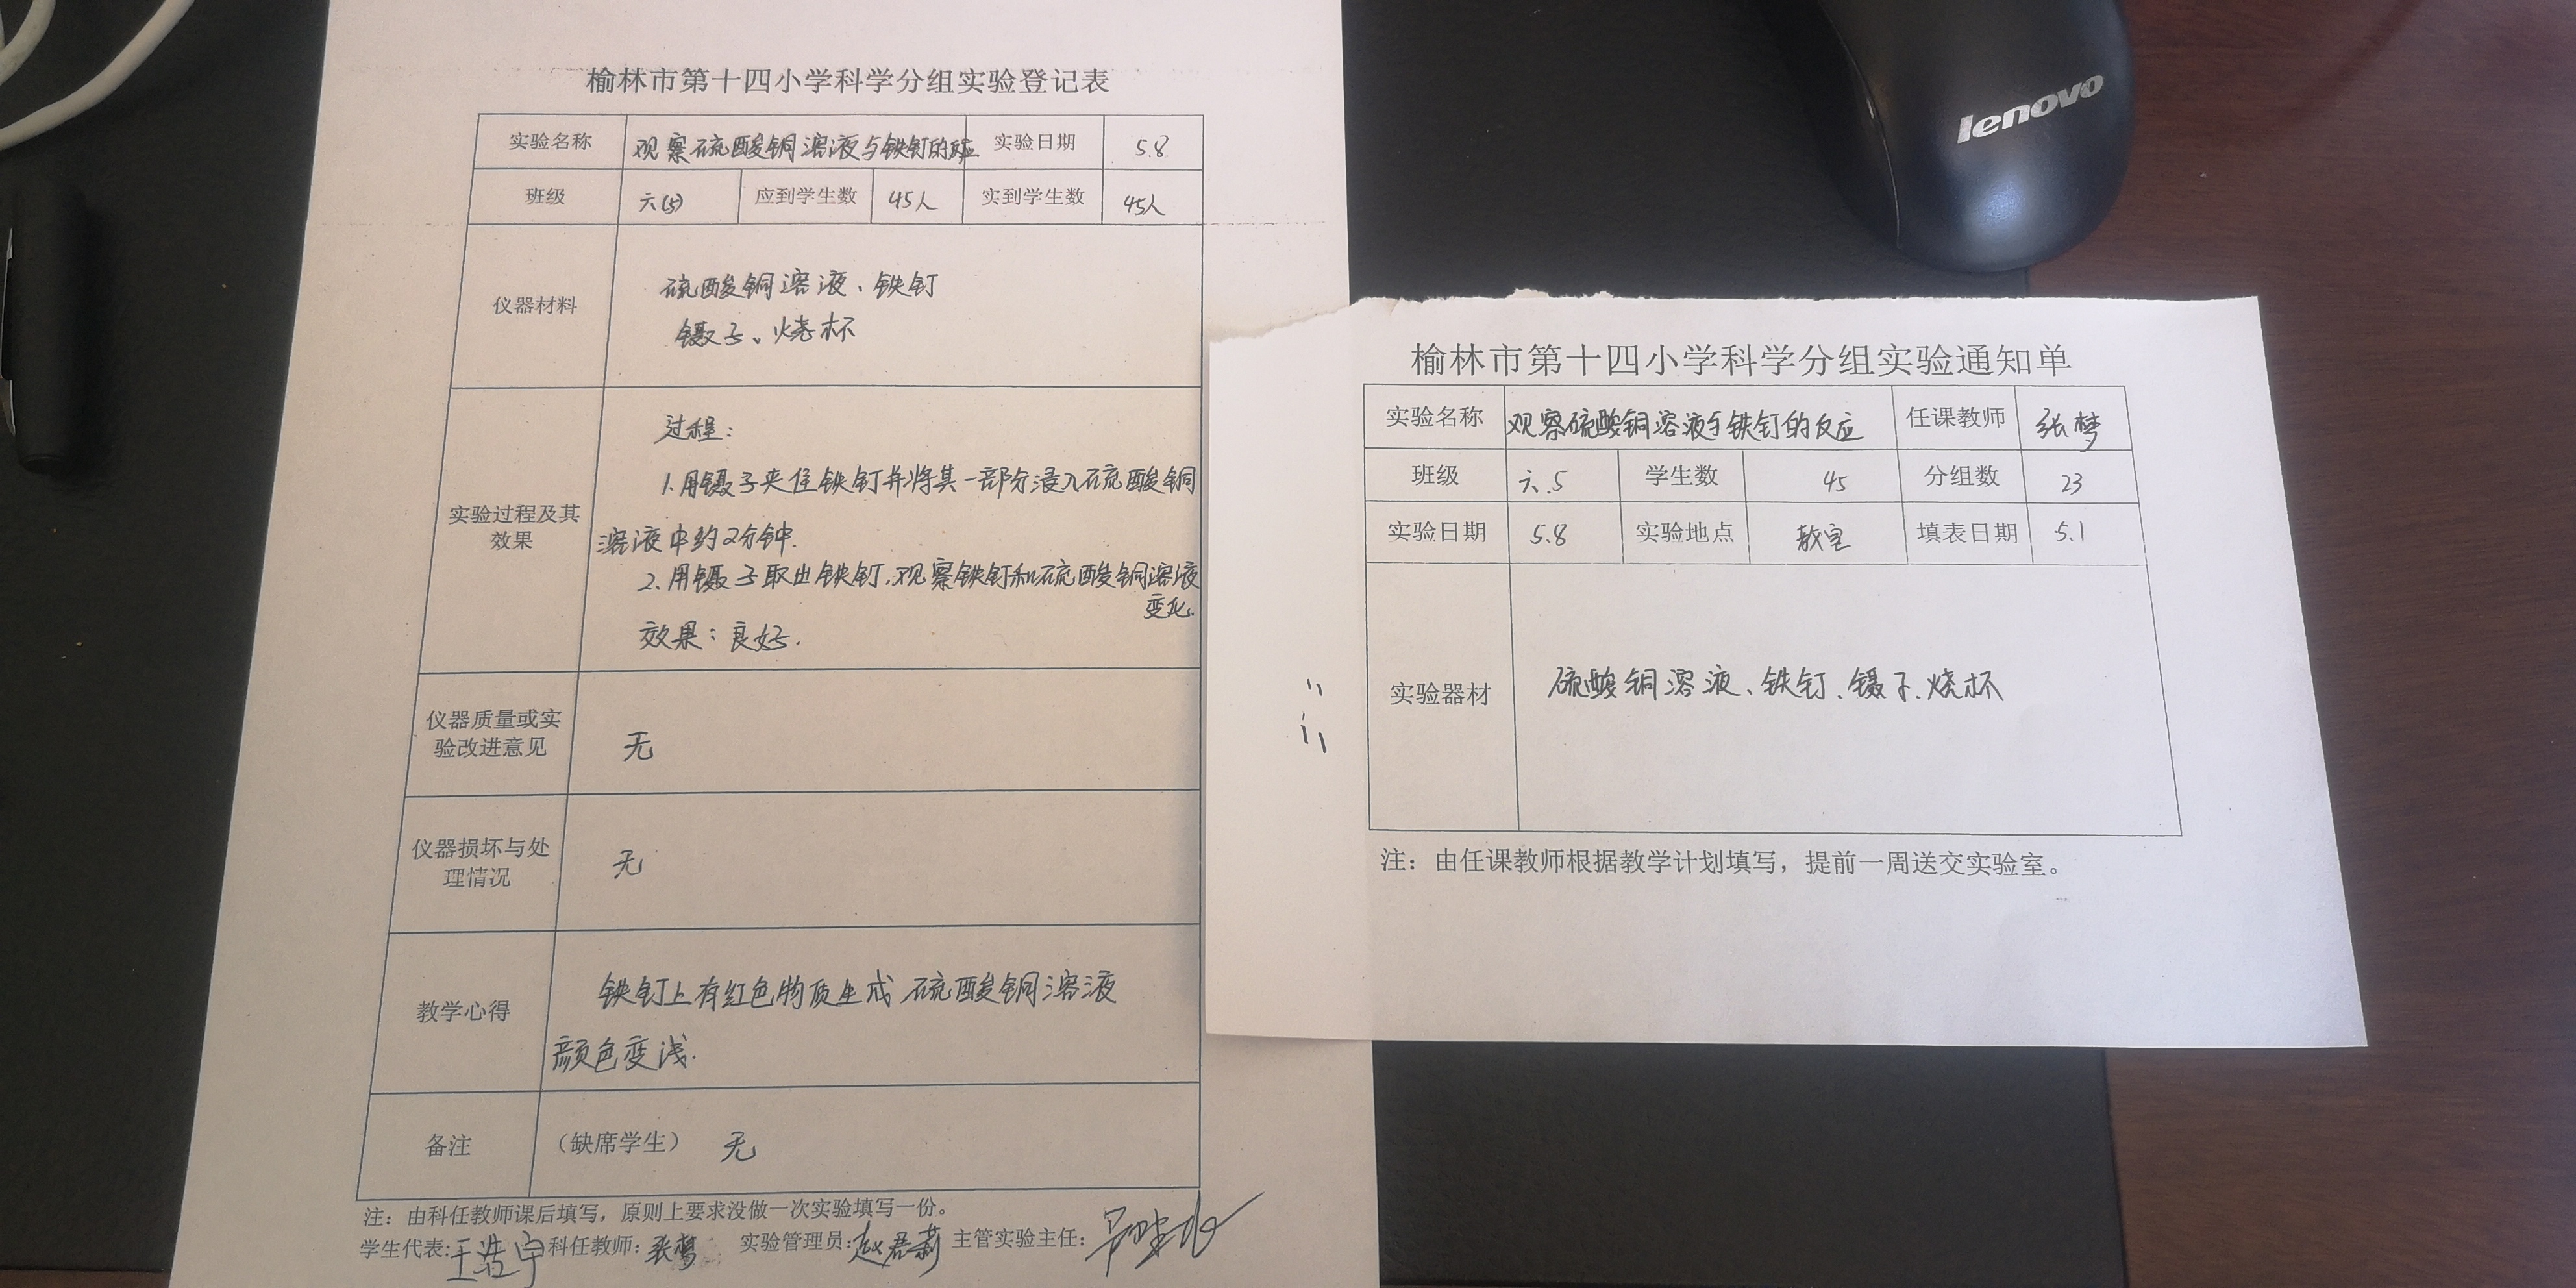 榆林市第十四小学科学分组实验登记表
实验名称 观察硫酸铜溶液与铁钉的反应 实验日期 5.8
班级 六(5) 应到学生数 45人 实到学生数 45人
仪器材料
硫酸铜溶液、铁钉
镊子、烧杯
实验过程及其
效果
过程：
1.用镊子夹住铁钉并将其一部分浸入硫酸铜
溶液中约2分钟.
2.用镊子取出铁钉,观察铁钉和硫酸铜溶液
变化.
效果：良好.
仪器质量或实
验改进意见
无
仪器损坏与处
理情况
无
教学心得
铁钉上有红色物质生成 硫酸铜溶液
颜色变浅.
备注 （缺席学生） 无
注：由科任教师课后填写，原则上要求没做一次实验填写一份。
学生代表:王浩宇 科任教师:张梦 实验管理员:赵君莉 主管实验主任:
lenovo
榆林市第十四小学科学分组实验通知单
实验名称 观察硫酸铜溶液与铁钉的反应 任课教师 张梦
班级 六.5 学生数 45 分组数 23
实验日期 5.8 实验地点 教室 填表日期 5.1
实验器材 硫酸铜溶液、铁钉、镊子、烧杯
注：由任课教师根据教学计划填写，提前一周送交实验室。